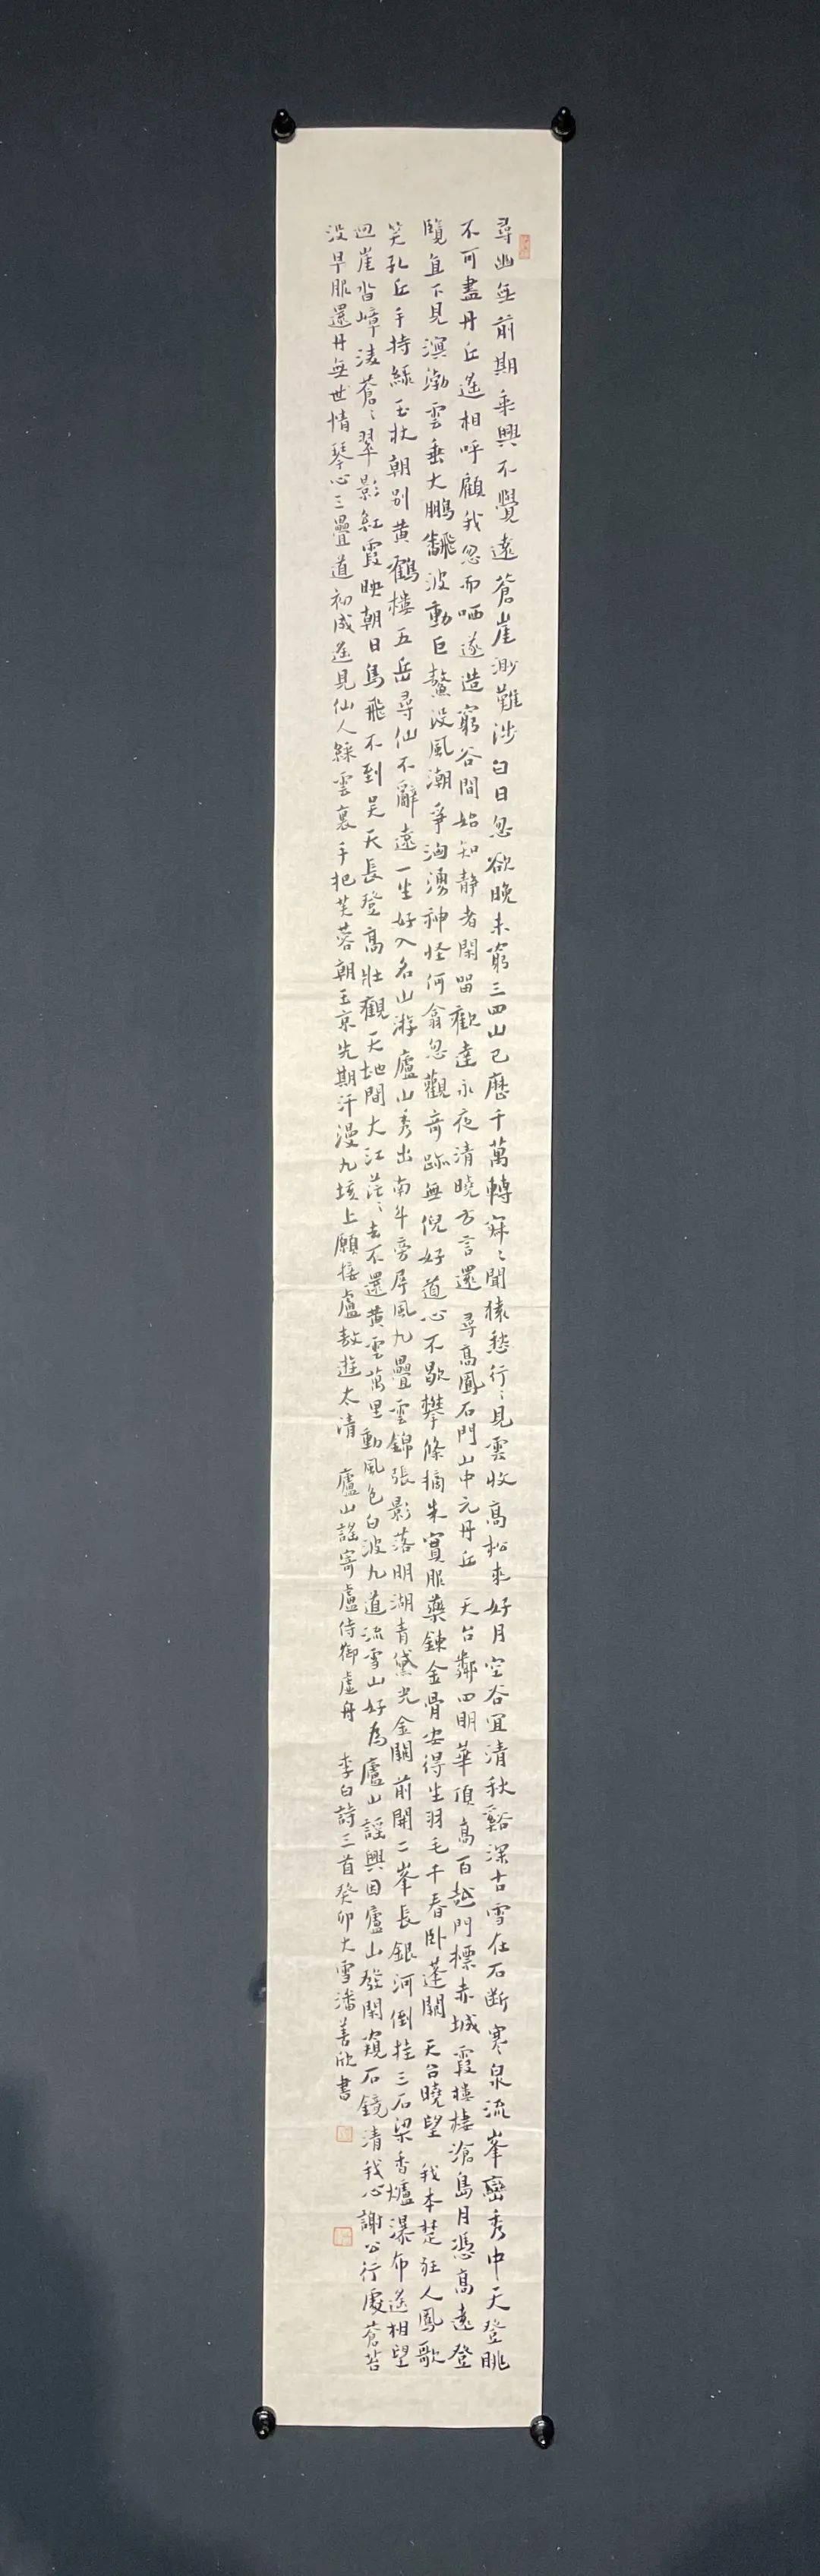 尋幽無前期乘興不覺遠蒼崖渺難涉白日忽欲晚未窮三四山已歷千萬轉寂〻聞猿愁行〻見雲收高松來好月空谷宜清秋谿深古雪在石斷寒泉流峯巒秀中天登眺
不可盡丹丘遙相呼顧我忽而哂遂造窮谷間始知靜者閑留歡達永夜清曉方言還 尋高鳳石門山中元丹丘 天台鄰四明華頂高百越門標赤城霞樓棲滄島月憑高遠登
覽直下見溟渤雲垂大鵬飜波動巨鰲沒風潮爭洶湧神怪何翕忽觀奇跡無倪好道心不歇攀條摘朱實服藥鍊金骨安得生羽毛千春臥蓬闕 天台曉望 我本楚狂人鳳歌
笑孔丘手持綠玉杖朝別黃鶴樓五岳尋仙不辭遠一生好入名山游廬山秀出南斗旁屏風九疊雲錦張影落明湖青黛光金闕前開二峯長銀河倒挂三石梁香爐瀑布遙相望
迴崖沓嶂淩蒼〻翠影紅霞映朝日鳥飛不到吳天長登高壯觀天地間大江茫〻去不還黃雲萬里動風色白波九道流雪山好為廬山謠興因廬山發閑窺石鏡清我心謝公行處蒼苔
沒早服還丹無世情琴心三疊道初成遙見仙人綵雲裏手把芙蓉朝玉京先期汗漫九垓上願接盧敖遊太清 廬山謠寄盧侍御虛舟 李白詩三首癸卯大雪潘善欣書